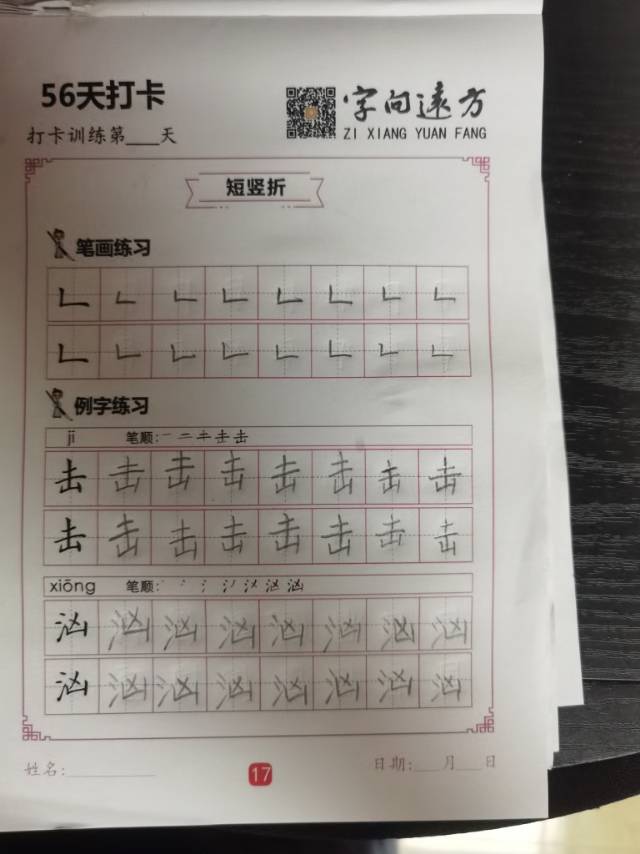 56天打卡
字向远方
打卡训练第___天
ZI XIANG YUAN FANG
短竖折
笔画练习
𠃊 𠃊 𠃊 𠃊 𠃊 𠃊 𠃊 𠃊
𠃊 𠃊 𠃊 𠃊 𠃊 𠃊 𠃊 𠃊
例字练习
jī 笔顺:
击 击 击 击 击 击 击 击
击 击 击 击 击 击 击 击
xiōng 笔顺:
汹 汹 汹 汹 汹 汹 汹 汹
汹 汹 汹 汹 汹 汹 汹 汹
姓名:________ 17 日期:___月___日